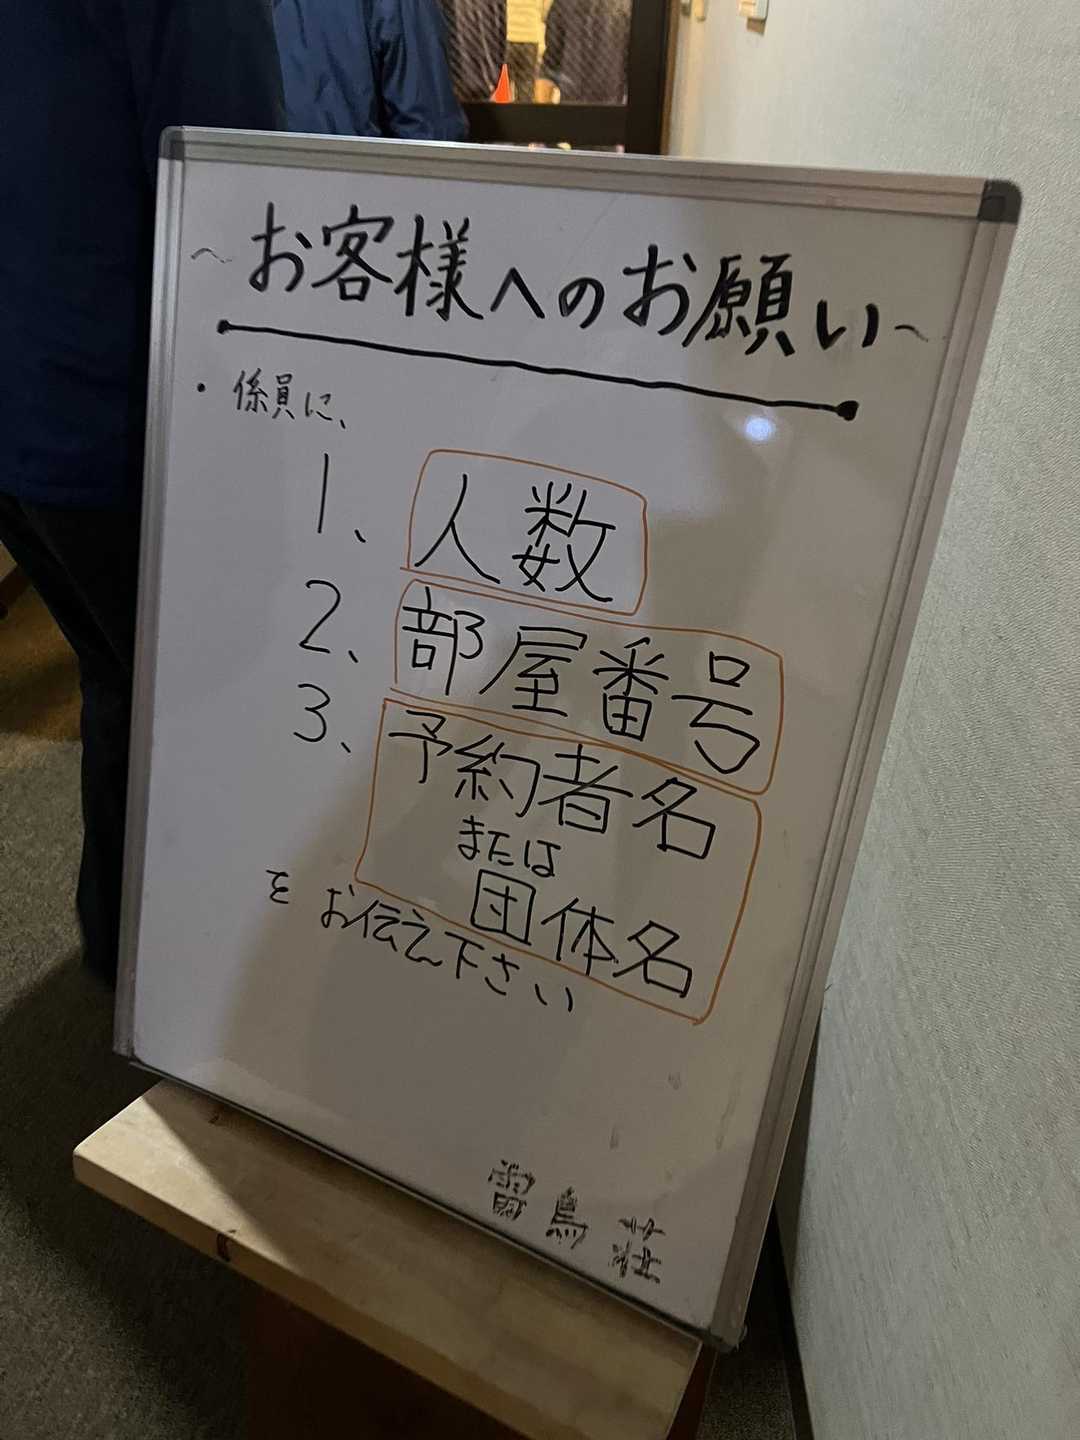 ~お客様へのお願い~
・係員に、
1、人数
2、部屋番号
3、予約者名
または
団体名
をお伝え下さい
雷鳥荘